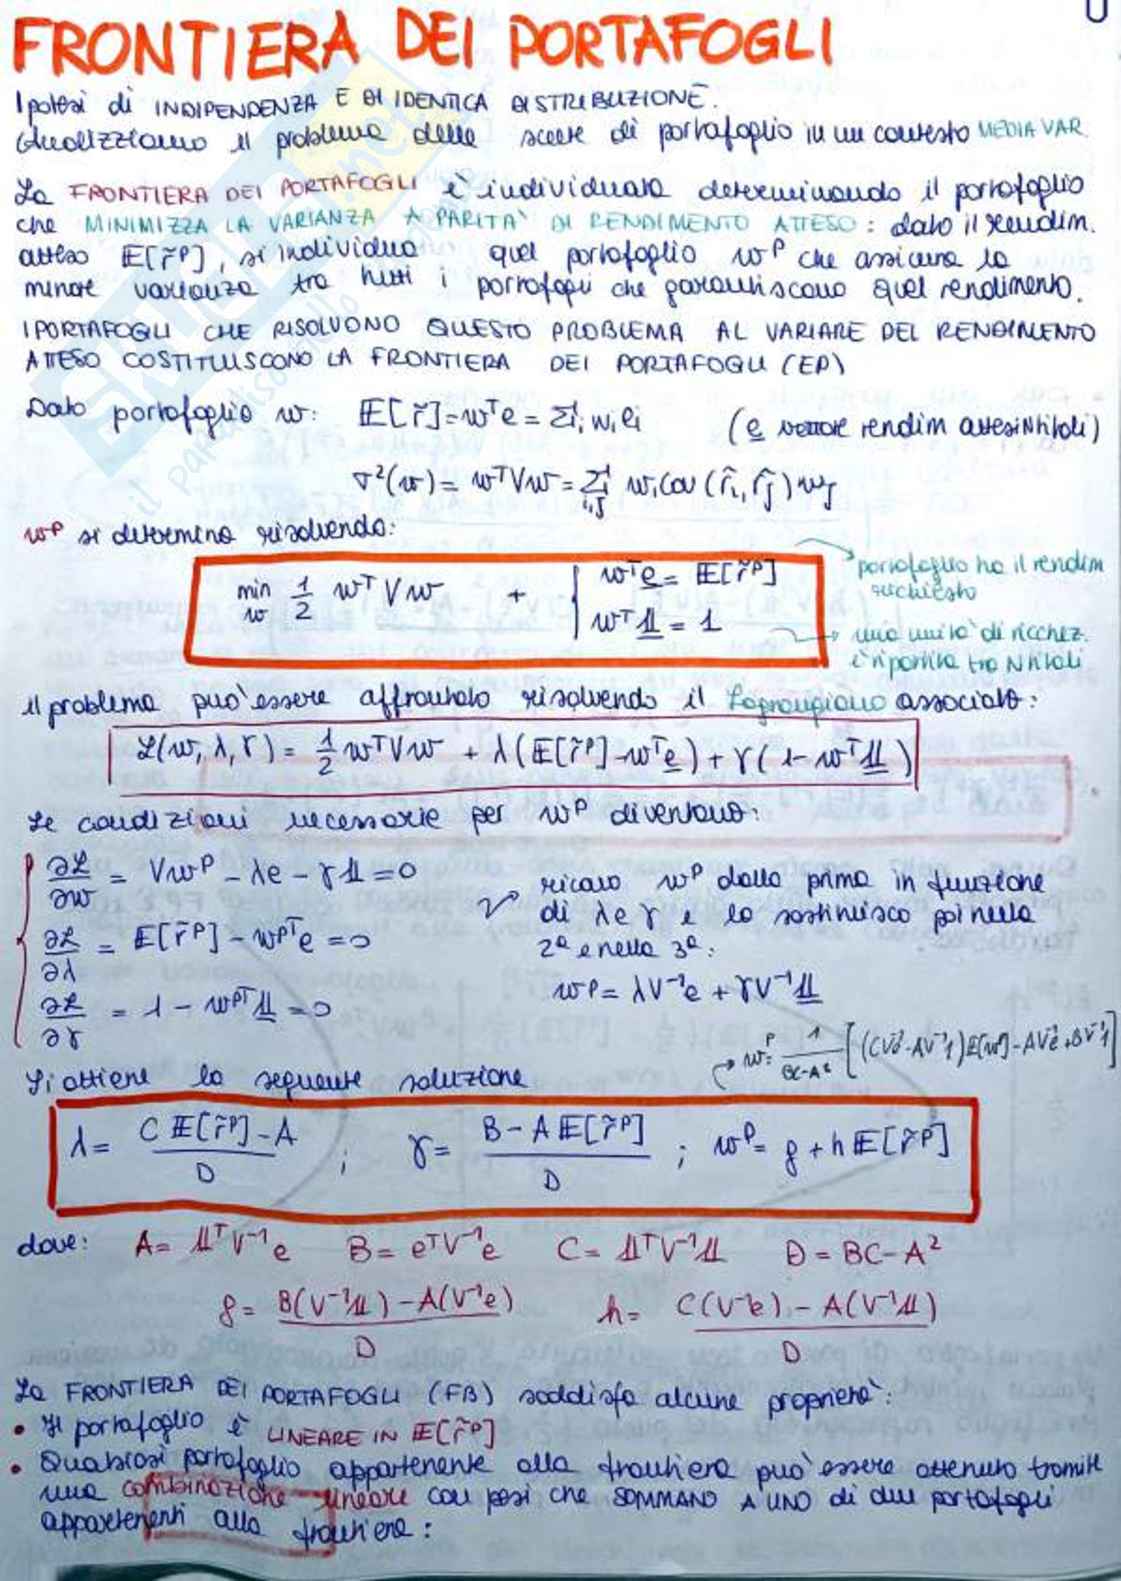 FRONTIERA DEI PORTAFOGLI
Ipotesi di INDIPENDENZA E DI IDENTICA DISTRIBUZIONE.
Analizziamo il problema delle scelte di portafoglio in un contesto MEDIA VAR.
La FRONTIERA DEI PORTAFOGLI è individuata determinando il portafoglio
che MINIMIZZA LA VARIANZA A PARITA' DI RENDIMENTO ATTESO: dato il rendim.
atteso E[r̃ᵖ], si individua quel portafoglio wᵖ che assicura la
minore varianza tra tutti i portafogli che garantiscano quel rendimento.
I PORTAFOGLI CHE RISOLVONO QUESTO PROBLEMA AL VARIARE DEL RENDIMENTO
ATTESO COSTITUISCONO LA FRONTIERA DEI PORTAFOGLI (EP)
Dato portafoglio w: E[r̃]=wᵀe = Σᵢ wᵢeᵢ (e vettore rendim attesi N titoli)
σ²(w) = wᵀVw = Σᵢ,ⱼ wᵢ cov(r̃ᵢ, r̃ⱼ) wⱼ
wᵖ si determina risolvendo:
min w 1/2 wᵀVw + { wᵀe = E[r̃ᵖ]
wᵀ𝟙 = 1
portafoglio ha il rendim
richiesto
una unita' di ricchez.
è ripartita tra N titoli
Il problema puo' essere affrontato risolvendo il Lagrangiano associato:
ℒ(w, λ, γ) = 1/2 wᵀVw + λ(E[r̃ᵖ] - wᵀe) + γ(1 - wᵀ𝟙)
Le condizioni necessarie per wᵖ diventano:
∂ℒ/∂w = Vwᵖ - λe - γ𝟙 = 0
∂ℒ/∂λ = E[r̃ᵖ] - wᵖᵀe = 0
∂ℒ/∂γ = 1 - wᵖᵀ𝟙 = 0
ricavo wᵖ dalla prima in funzione
di λ e γ e lo sostituisco poi nella
2ª e nella 3ª:
wᵖ = λV⁻¹e + γV⁻¹𝟙
wᵖ = 1/(BC-A²) [(CV⁻¹e - AV⁻¹1)E[wᵖ] - AV⁻¹e + BV⁻¹1]
Si ottiene la seguente soluzione
λ = (C E[r̃ᵖ] - A)/D ; γ = (B - A E[r̃ᵖ])/D ; wᵖ = g + h E[r̃ᵖ]
dove: A = 𝟙ᵀV⁻¹e B = eᵀV⁻¹e C = 𝟙ᵀV⁻¹𝟙 D = BC - A²
g = (B(V⁻¹𝟙) - A(V⁻¹e))/D h = (C(V⁻¹e) - A(V⁻¹𝟙))/D
La FRONTIERA DEI PORTAFOGLI (FB) soddisfa alcune proprietà:
• Il portafoglio è LINEARE IN E[r̃ᵖ]
• Qualsiasi portafoglio appartenente alla frontiera puo' essere ottenuto tramite
una combinazione lineare con pesi che SOMMANO A UNO di due portafogli
appartenenti alla frontiera: